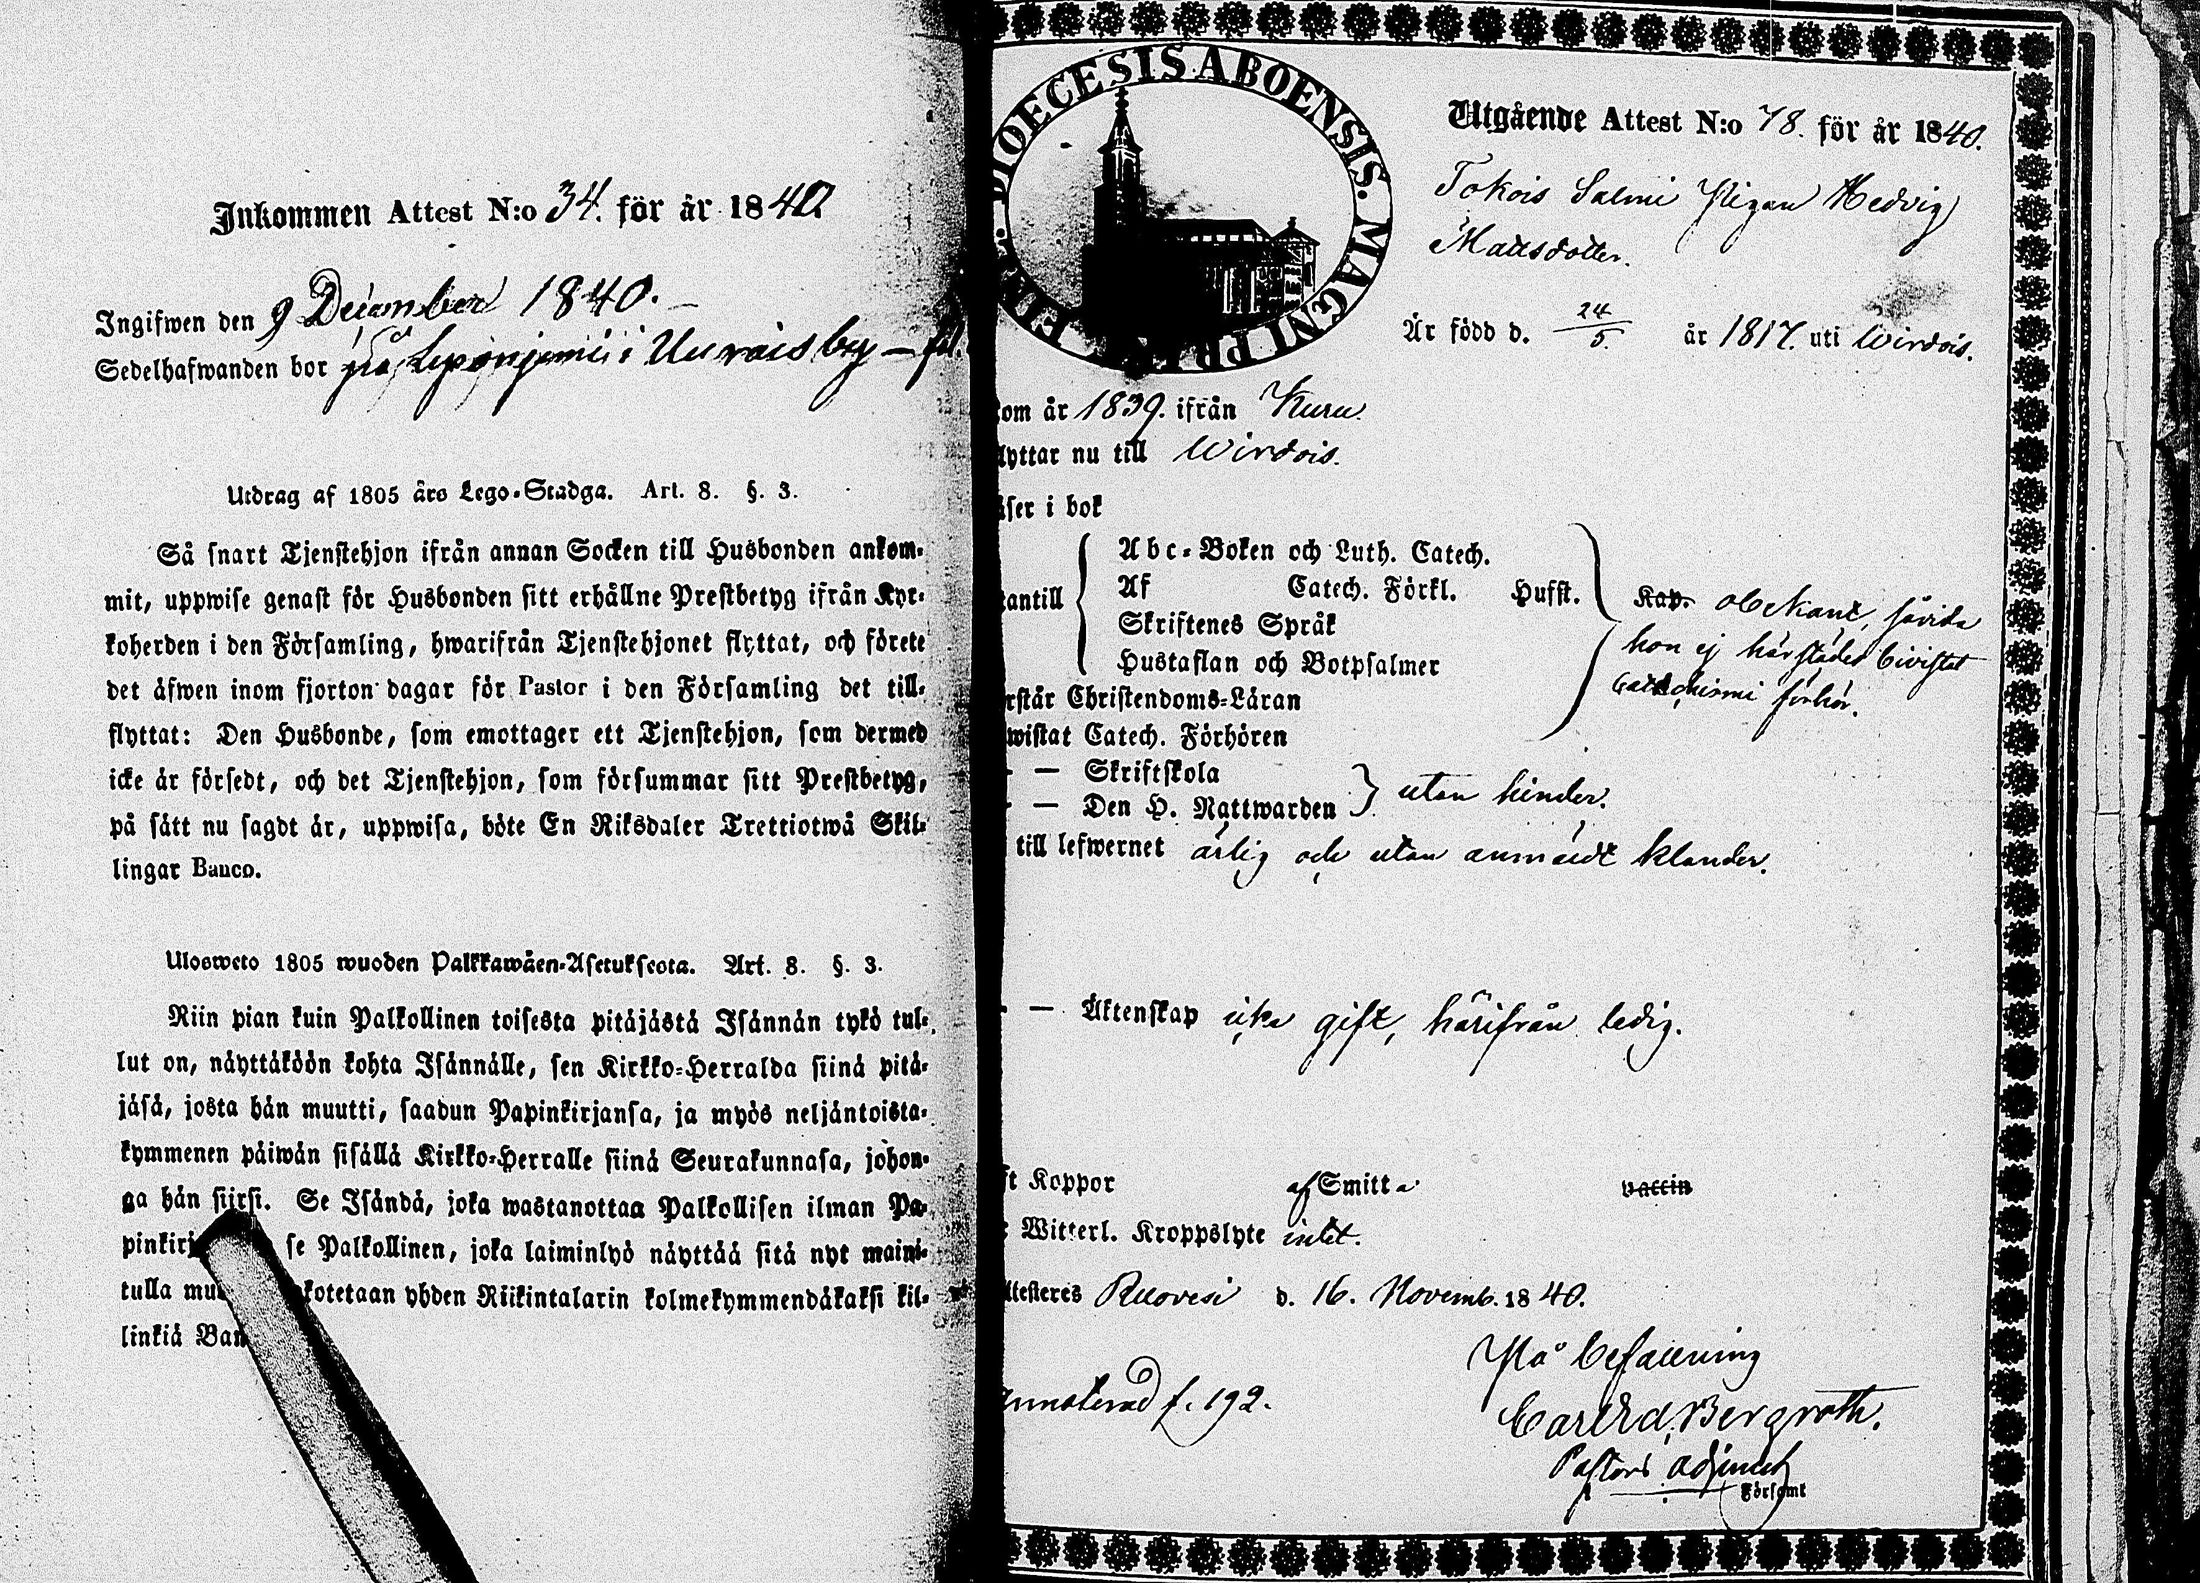 Inkommen Attest N:o 34. för år 1840.
Ingifwen den 9 December 1840. –
Sedelhafwanden bor på i
Utdrag af 1805 års Lego-Stadga. Art. 8. §. 3.
Så snart Tjenstehjon ifrån annan Socken till Husbonden ankom-
mit, uppwise genast för Husbonden sitt erhållne Prestbetyg ifrån Kyr-
koherden i den Församling, hwarifrån Tjenstehjonet flyttat, och förete
det äfwen inom fjorton dagar för Pastor i den Församling det till-
flyttat: Den Husbonde, som emottager ett Tjenstehjon, som dermed
icke är försedt, och det Tjenstehjon, som försummar sitt Prestbetyg,
på sätt nu sagdt är, uppwisa, böte En Riksdaler Trettiotwå Skil-
lingar Banco.
Ulosweto 1805 wuoden Palkkawäen-Asetuksesta. Art. 8. §. 3.
Niin pian kuin Palkollinen toisesta pitäjästä Isännän tykö tul-
lut on, näyttäköön kohta Isännälle, sen Kirkko-Herralda siinä pitä-
jäsä, josta hän muutti, saadun Papinkirjansa, ja myös neljäntoista-
kymmenen päiwän sisällä Kirkko-Herralle siinä Seurakunnasa, johon-
ga hän siirsi. Se Isändä, joka wastanottaa Palkollisen ilman Pa-
pinkirj se Palkollinen, joka laiminlyö näyttää sitä nyt maini-
tulla mu kotetaan yhden Riikintalarin kolmekymmendäkaksi kil-
linkiä Ban
DIOECESIS ABOENSIS. MAGNI PR
Utgående Attest N:o 78. för år 1840.
Tokois Salmi Pigan Hedvig
Mattsdotter.
Är född d. 24/5. år 1817. uti Wirdois.
kom år 1839. ifrån Kuru.
flyttar nu till Wirdois.
äser i bok
Abc-Boken och Luth. Catech.
antill Af Catech. Förkl. Hufst. Kap. obekant, såvida
Skriftenes Språk hon ej härstädes bivistat
Hustaflan och Botpsalmer Catechismi förhör.
rstår Christendoms-Läran
wistat Catech. Förhören
– – Skriftskola
– – Den H. Nattwarden utan hinder.
till lefwernet ärlig och utan anmärkt klander.
– – Äktenskap icke gift, härifrån ledig.
ft Koppor af Smitta vaccin
Witterl. Kroppslyte intet.
ttesteres Ruovesi d. 16. Novemb. 1840.
På befallning
Carl Ed. Bergroth.
Pastors adjunct
Församl
annoterad f. 192.